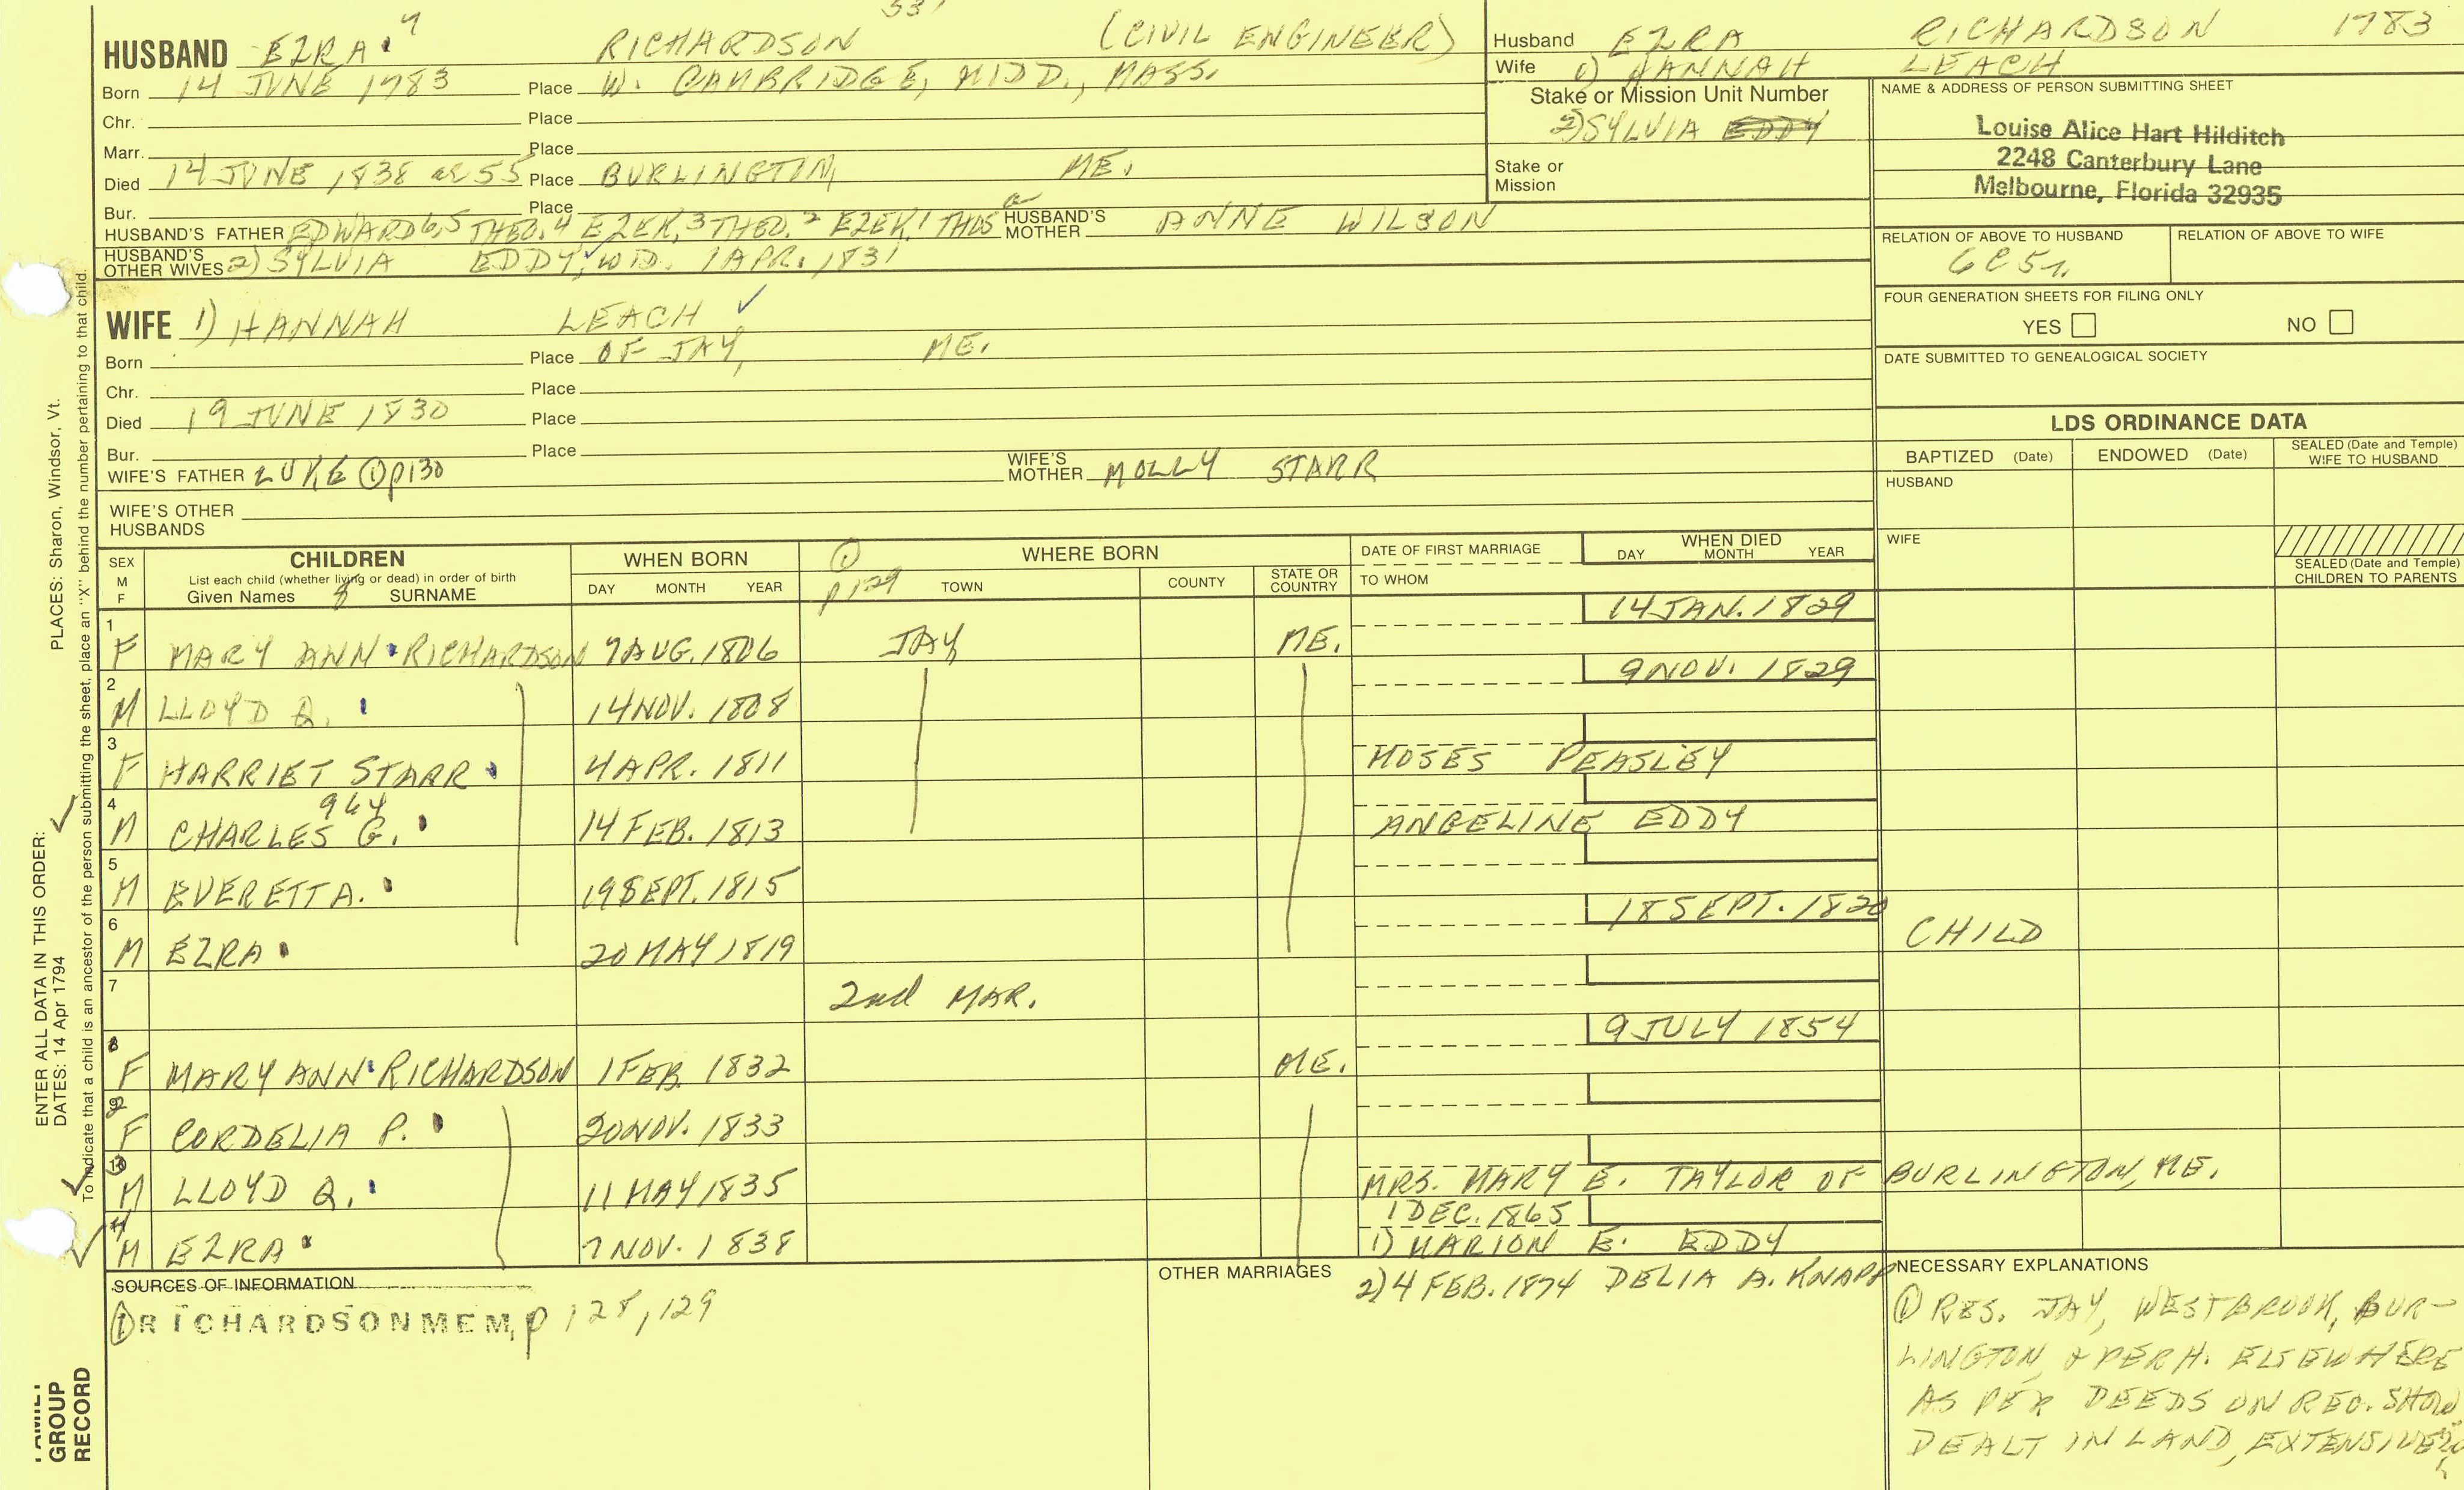 HUSBAND EZRA RICHARDSON (CIVIL ENGINEER)
Born 14 JUNE 1783 Place W. CAMBRIDGE, MIDD., MASS.
Chr. Place
Marr. Place
Died 14 JUNE 1838 ae 55 Place BURLINGTON, ME.
Bur. Place
HUSBAND'S FATHER EDWARD 6, 5 THEO. 4 EZEK, 3 THEO. 2 EZEK, 1 THOS HUSBAND'S MOTHER ANNE WILSON
HUSBAND'S OTHER WIVES 2) SYLVIA EDDY, WID. 1 APR. 1831
WIFE 1) HANNAH LEACH
Born Place OF JAY, ME.
Chr. Place
Died 19 JUNE 1830 Place
Bur. Place
WIFE'S FATHER LUKE ① p130 WIFE'S MOTHER MOLLY STARR
WIFE'S OTHER HUSBANDS
Husband EZRA RICHARDSON 1783
Wife 1) HANNAH LEACH
Stake or Mission Unit Number
2) SYLVIA EDDY
Stake or Mission
NAME & ADDRESS OF PERSON SUBMITTING SHEET
Louise Alice Hart Hilditch
2248 Canterbury Lane
Melbourne, Florida 32935
RELATION OF ABOVE TO HUSBAND RELATION OF ABOVE TO WIFE
6C5r.
FOUR GENERATION SHEETS FOR FILING ONLY
YES NO
DATE SUBMITTED TO GENEALOGICAL SOCIETY
LDS ORDINANCE DATA
BAPTIZED (Date) ENDOWED (Date) SEALED (Date and Temple) WIFE TO HUSBAND
HUSBAND
WIFE
SEALED (Date and Temple) CHILDREN TO PARENTS
SEX M F CHILDREN List each child (whether living or dead) in order of birth Given Names SURNAME
WHEN BORN DAY MONTH YEAR
① p129 WHERE BORN TOWN COUNTY STATE OR COUNTRY
DATE OF FIRST MARRIAGE TO WHOM
WHEN DIED DAY MONTH YEAR
1 F MARY ANN RICHARDSON 7 AUG. 1806 JAY ME. 14 JAN. 1829
2 M LLOYD Q. 14 NOV. 1808 9 NOV. 1829
3 F HARRIET STARR 4 APR. 1811 MOSES PEASLEY
964
4 M CHARLES G. 14 FEB. 1813 ANGELINE EDDY
5 M EVERETT A. 19 SEPT. 1815
6 M EZRA 20 MAY 1819 18 SEPT. 1820 CHILD
7 2nd MAR.
8 F MARY ANN RICHARDSON 1 FEB. 1832 ME. 9 JULY 1854
F CORDELIA P. 20 NOV. 1833
M LLOYD Q. 11 MAY 1835 MRS. MARY E. TAYLOR OF BURLINGTON, ME.
M EZRA 7 NOV. 1838 1 DEC. 1865 1) MARION E. EDDY
SOURCES OF INFORMATION
① RICHARDSON MEM, p 128, 129
OTHER MARRIAGES 2) 4 FEB. 1874 DELIA A. KNAPP
NECESSARY EXPLANATIONS
① RES. JAY, WESTBROOK, BUR-
LINGTON, & PERH. ELSEWHERE
AS PER DEEDS ON REC. SHOW
DEALT IN LAND, EXTENSIVELY
PLACES: Sharon, Windsor, Vt.
To indicate that a child is an ancestor of the person submitting the sheet, place an "X" behind the number pertaining to that child.
ENTER ALL DATA IN THIS ORDER:
DATES: 14 Apr 1794
FAMILY GROUP RECORD